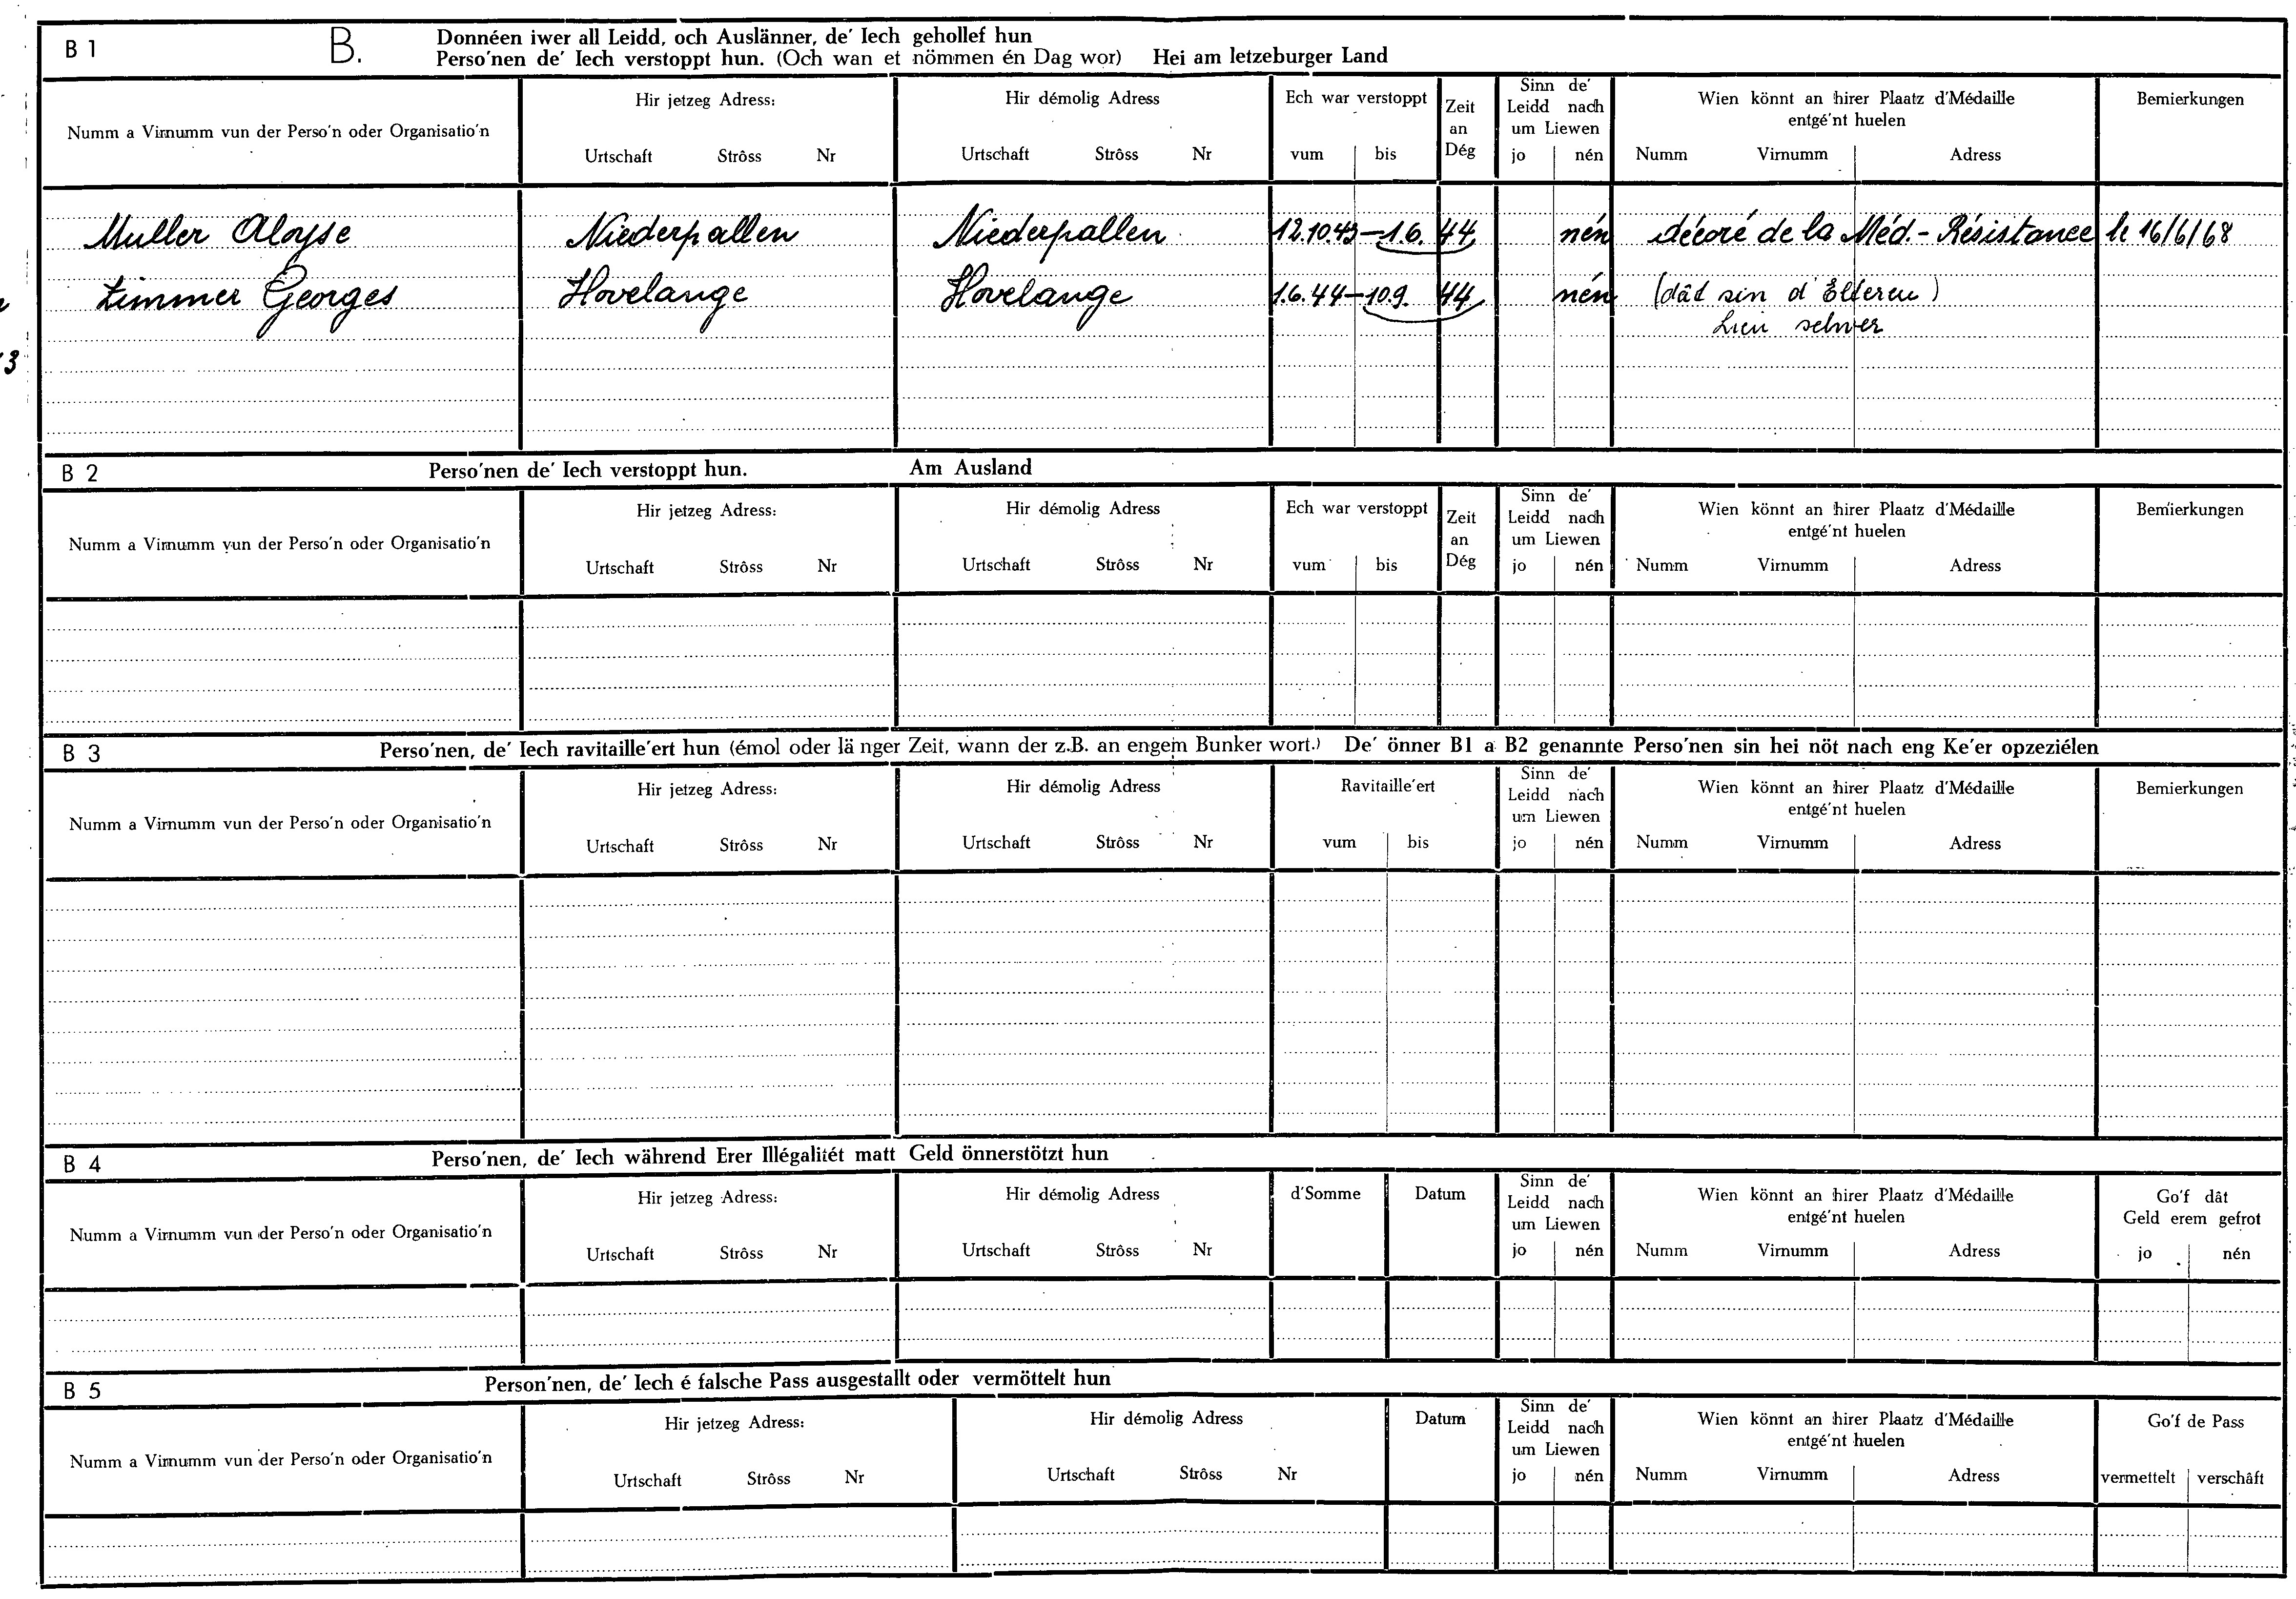 B 1 B. Donnéen iwer all Leidd, och Auslänner, de' Iech gehollef hun
Perso'nen de' Iech verstoppt hun. (Och wan et nömmen én Dag wor) Hei am letzeburger Land
Numm a Virnumm vun der Perso'n oder Organisatio'n
Hir jetzeg Adress:
Urtschaft Strôss Nr
Hir démolig Adress
Urtschaft Strôss Nr
Ech war verstoppt
vum bis
Zeit
an
Dég
Sinn de'
Leidd nach
um Liewen
jo nén
Wien könnt an hirer Plaatz d'Médaille
entgé'nt huelen
Numm Virnumm Adress
Bemierkungen
Muller Aloyse Niederpallen Niederpallen 12.10.43 – 1.6. 44 nén décoré de la Méd. - Résistance le 16/6/68
Zimmer Georges Hovelange Hovelange 1.6.44 – 10.9. 44 nén (dât sin d'Elteren)
selwer
3
B 2 Perso'nen de' Iech verstoppt hun. Am Ausland
Numm a Virnumm vun der Perso'n oder Organisatio'n
Hir jetzeg Adress:
Urtschaft Strôss Nr
Hir démolig Adress
Urtschaft Strôss Nr
Ech war verstoppt
vum bis
Zeit
an
Dég
Sinn de'
Leidd nach
um Liewen
jo nén
Wien könnt an hirer Plaatz d'Médaille
entgé'nt huelen
Numm Virnumm Adress
Bemierkungen
B 3 Perso'nen, de' Iech ravitaille'ert hun (émol oder länger Zeit, wann der z.B. an engem Bunker wort.) De' önner B1 a B2 genannte Perso'nen sin hei nöt nach eng Ke'er opzeziélen
Numm a Virnumm vun der Perso'n oder Organisatio'n
Hir jetzeg Adress:
Urtschaft Strôss Nr
Hir démolig Adress
Urtschaft Strôss Nr
Ravitaille'ert
vum bis
Sinn de'
Leidd nach
um Liewen
jo nén
Wien könnt an hirer Plaatz d'Médaille
entgé'nt huelen
Numm Virnumm Adress
Bemierkungen
B 4 Perso'nen, de' Iech während Erer Illégalitét matt Geld önnerstötzt hun
Numm a Virnumm vun der Perso'n oder Organisatio'n
Hir jetzeg Adress:
Urtschaft Strôss Nr
Hir démolig Adress
Urtschaft Strôss Nr
d'Somme
Datum
Sinn de'
Leidd nach
um Liewen
jo nén
Wien könnt an hirer Plaatz d'Médaille
entgé'nt huelen
Numm Virnumm Adress
Go'f dât
Geld erem gefrot
jo nén
B 5 Person'nen, de' Iech é falsche Pass ausgestallt oder vermöttelt hun
Numm a Virnumm vun der Perso'n oder Organisatio'n
Hir jetzeg Adress:
Urtschaft Strôss Nr
Hir démolig Adress
Urtschaft Strôss Nr
Datum
Sinn de'
Leidd nach
um Liewen
jo nén
Wien könnt an hirer Plaatz d'Médaille
entgé'nt huelen
Numm Virnumm Adress
Go'f de Pass
vermettelt verschâft